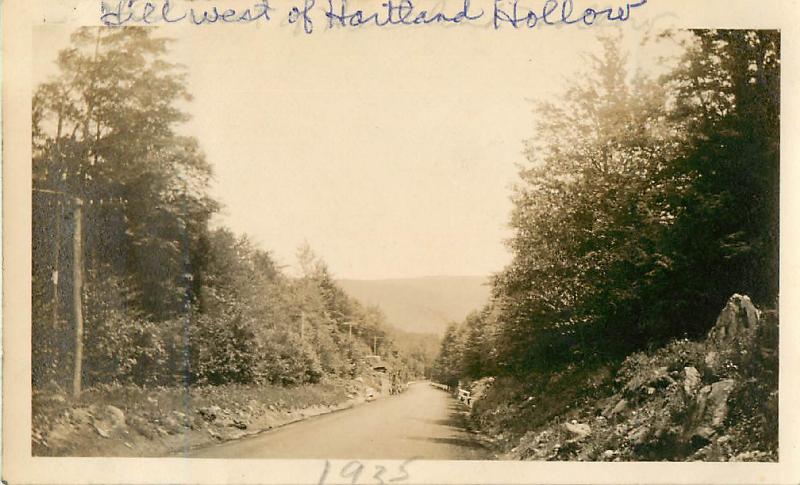 Hill west of Hartland Hollow
1935